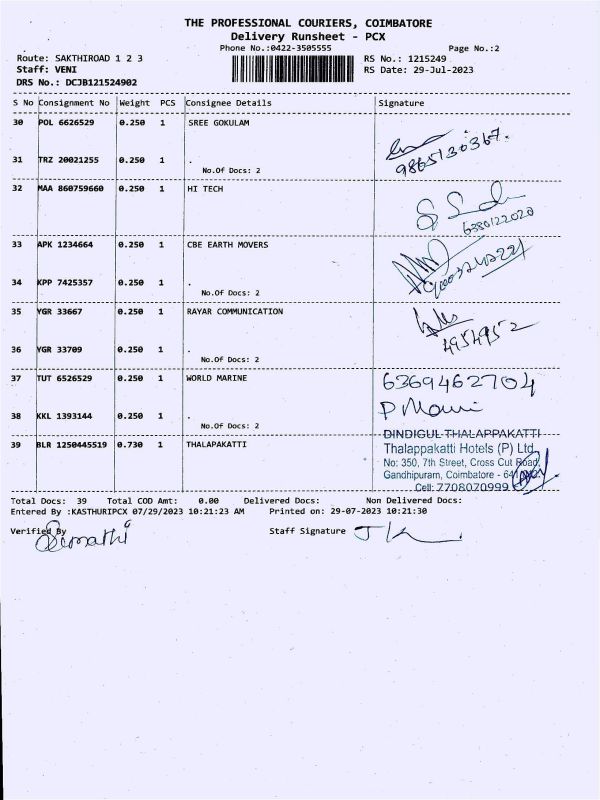 THE PROFESSIONAL COURIERS, COIMBATORE
Delivery Runsheet - PCX
Phone No.:0422-3505555 Page No.:2
Route: SAKTHIROAD 1 2 3 RS No.: 1215249
Staff: VENI RS Date: 29-Jul-2023
DRS No.: DCJB121524902
S No Consignment No Weight PCS Consignee Details Signature
30 POL 6626529 0.250 1 SREE GOKULAM
9865130367.
31 TRZ 20021255 0.250 1 .
No.Of Docs: 2
32 MAA 860759660 0.250 1 HI TECH
6380122020
33 APK 1234664 0.250 1 CBE EARTH MOVERS
34 KPP 7425357 0.250 1 .
No.Of Docs: 2
35 YGR 33667 0.250 1 RAYAR COMMUNICATION
4954952
36 YGR 33709 0.250 1 .
No.Of Docs: 2
37 TUT 6526529 0.250 1 WORLD MARINE 6369462704
38 KKL 1393144 0.250 1 .
No.Of Docs: 2
39 BLR 1250445519 0.730 1 THALAPAKATTI
DINDIGUL THALAPPAKATTI
Thalappakatti Hotels (P) Ltd
No: 350, 7th Street, Cross Cut Road,
Gandhipuram, Coimbatore -
Cell: 7708070999
Total Docs: 39 Total COD Amt: 0.00 Delivered Docs: Non Delivered Docs:
Entered By :KASTHURIPCX 07/29/2023 10:21:23 AM Printed on: 29-07-2023 10:21:30
Verified By Staff Signature